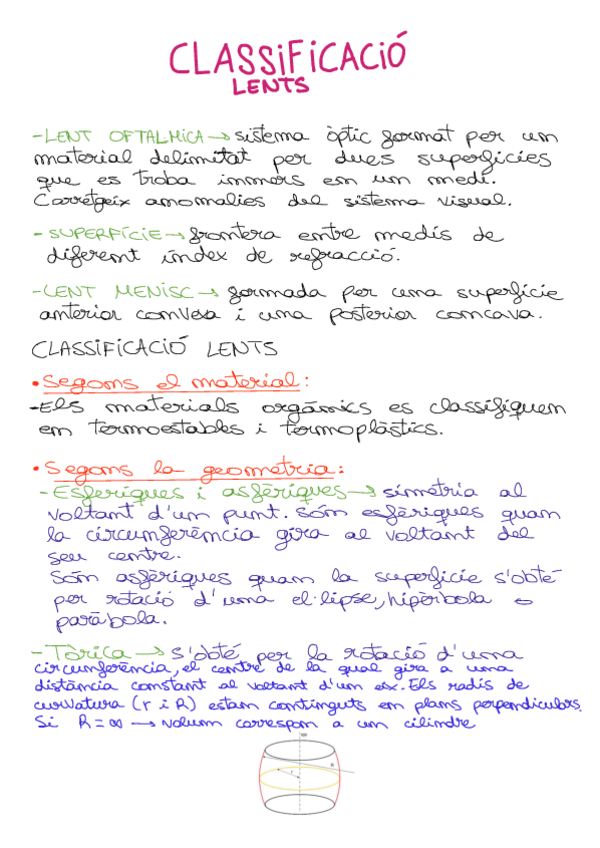 CLASSIFICACIÓ
LENTS
-LENT OFTALMICA → sistema òptic format per un
material delimitat per dues superfícies
que es troba immers en un medi.
Corretgeix anomalies del sistema visual.
- SUPERFÍCIE → frontera entre medis de
diferent índex de refracció.
-LENT MENISC → formada per una superfície
anterior convexa i una posterior concava.
CLASSIFICACIÓ LENTS
• Segons el material:
-Els materials orgánics es classifiquen
em termoestables i termoplàstics.
• Segons la geometria:
- Esfèriques i asfèriques → simetria al
voltant d'un punt. Són esfèriques quan
la circumferència gira al voltant del
seu centre.
Són asfèriques quan la superfície s'obté
per rotació d'una el·lipse, hipèrbola o
paràbola.
- Tòrica → s'obté per la rotació d'una
circumferència, el centre de la qual gira a una
distància constant al voltant d'un eix. Els radis de
curvatura (r i R) estan continguts en plans perpendiculars.
Si R = ∞ → volum correspon a un cilindre
r
R